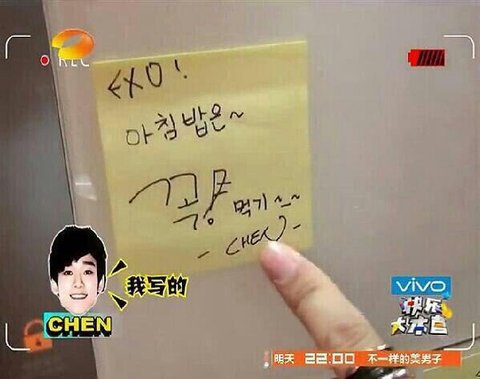 REC
EXO!
아침밥은~
꼭!
먹기~~
- CHEN -
我写的
CHEN
vivo
快乐
大本营
明天 22:00 不一样的美男子